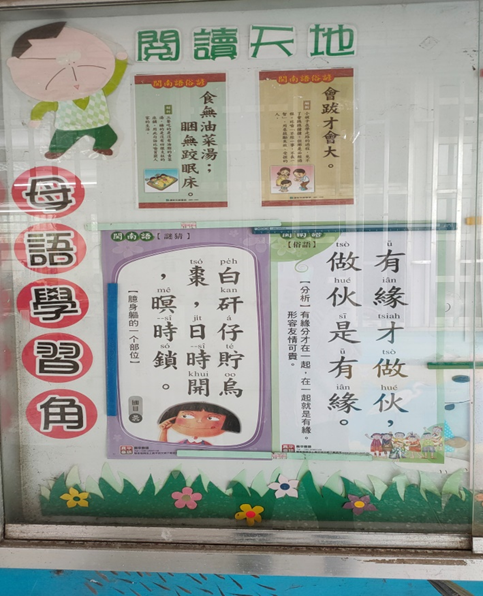 閱讀天地
母語學習角
閩南語俗諺
會跋才會大。
閩南語俗諺
食無油菜湯；
睏無跤眠床。
閩南語
【俗語】
ū iân tsiah tsò hué
有緣才做伙，
tsò hué sī ū iân
做伙是有緣。
【分析】有緣分才在一起，在一起就是有緣。
形容友情可貴。
閩南語【謎猜】
pe̍h kan á té oo
白矸仔貯烏
tsó ji̍t sî khui
棗，日時開
mê sî só
，暝時鎖。
【臆身軀的一個部位】